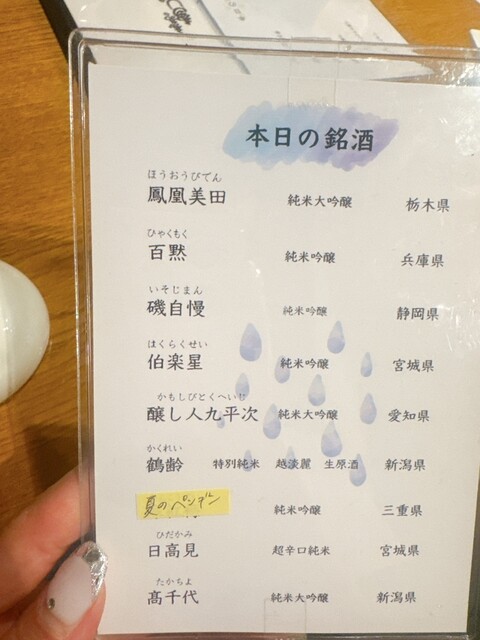 本日の銘酒
ほうおうびでん
鳳凰美田 純米大吟醸 栃木県
ひゃくもく
百黙 純米吟醸 兵庫県
いそじまん
磯自慢 純米吟醸 静岡県
はくらくせい
伯楽星 純米吟醸 宮城県
かもしびとくへいじ
醸し人九平次 純米大吟醸 愛知県
かくれい
鶴齢 特別純米 越淡麗 生原酒 新潟県
夏のペンギン 純米吟醸 三重県
ひだかみ
日高見 超辛口純米 宮城県
たかちよ
髙千代 純米大吟醸 新潟県